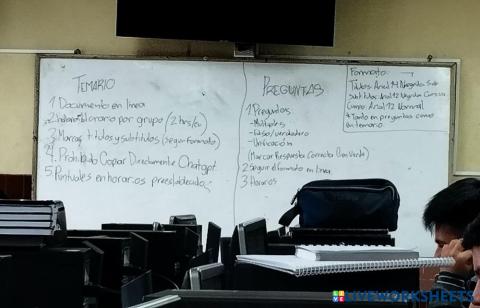 TEMARIO
1 Documento en linea
2 Horario por grupo (2 hrs/c)
3 Marcar titulos y subtitulos (segun formato)
4. Prohibido Copiar Directamente Chatgpt.
5 Puntuales en horarios preestablecidos
PREGUNTAS
1 Preguntas
- Multiples
- Falso/verdadero
- Unificación
(Marcar Respuesta Correcta Con Verde)
2 Seguir el formato en linea
3 Horarios
Formato
Titulos: Arial 14 Negrita Sub
Subtitulos: Arial 12 Negrita Cursiva
Cuerpo: Arial 12 Normal
* Tanto en preguntas como
en temario.
LIVEWORKSHEETS